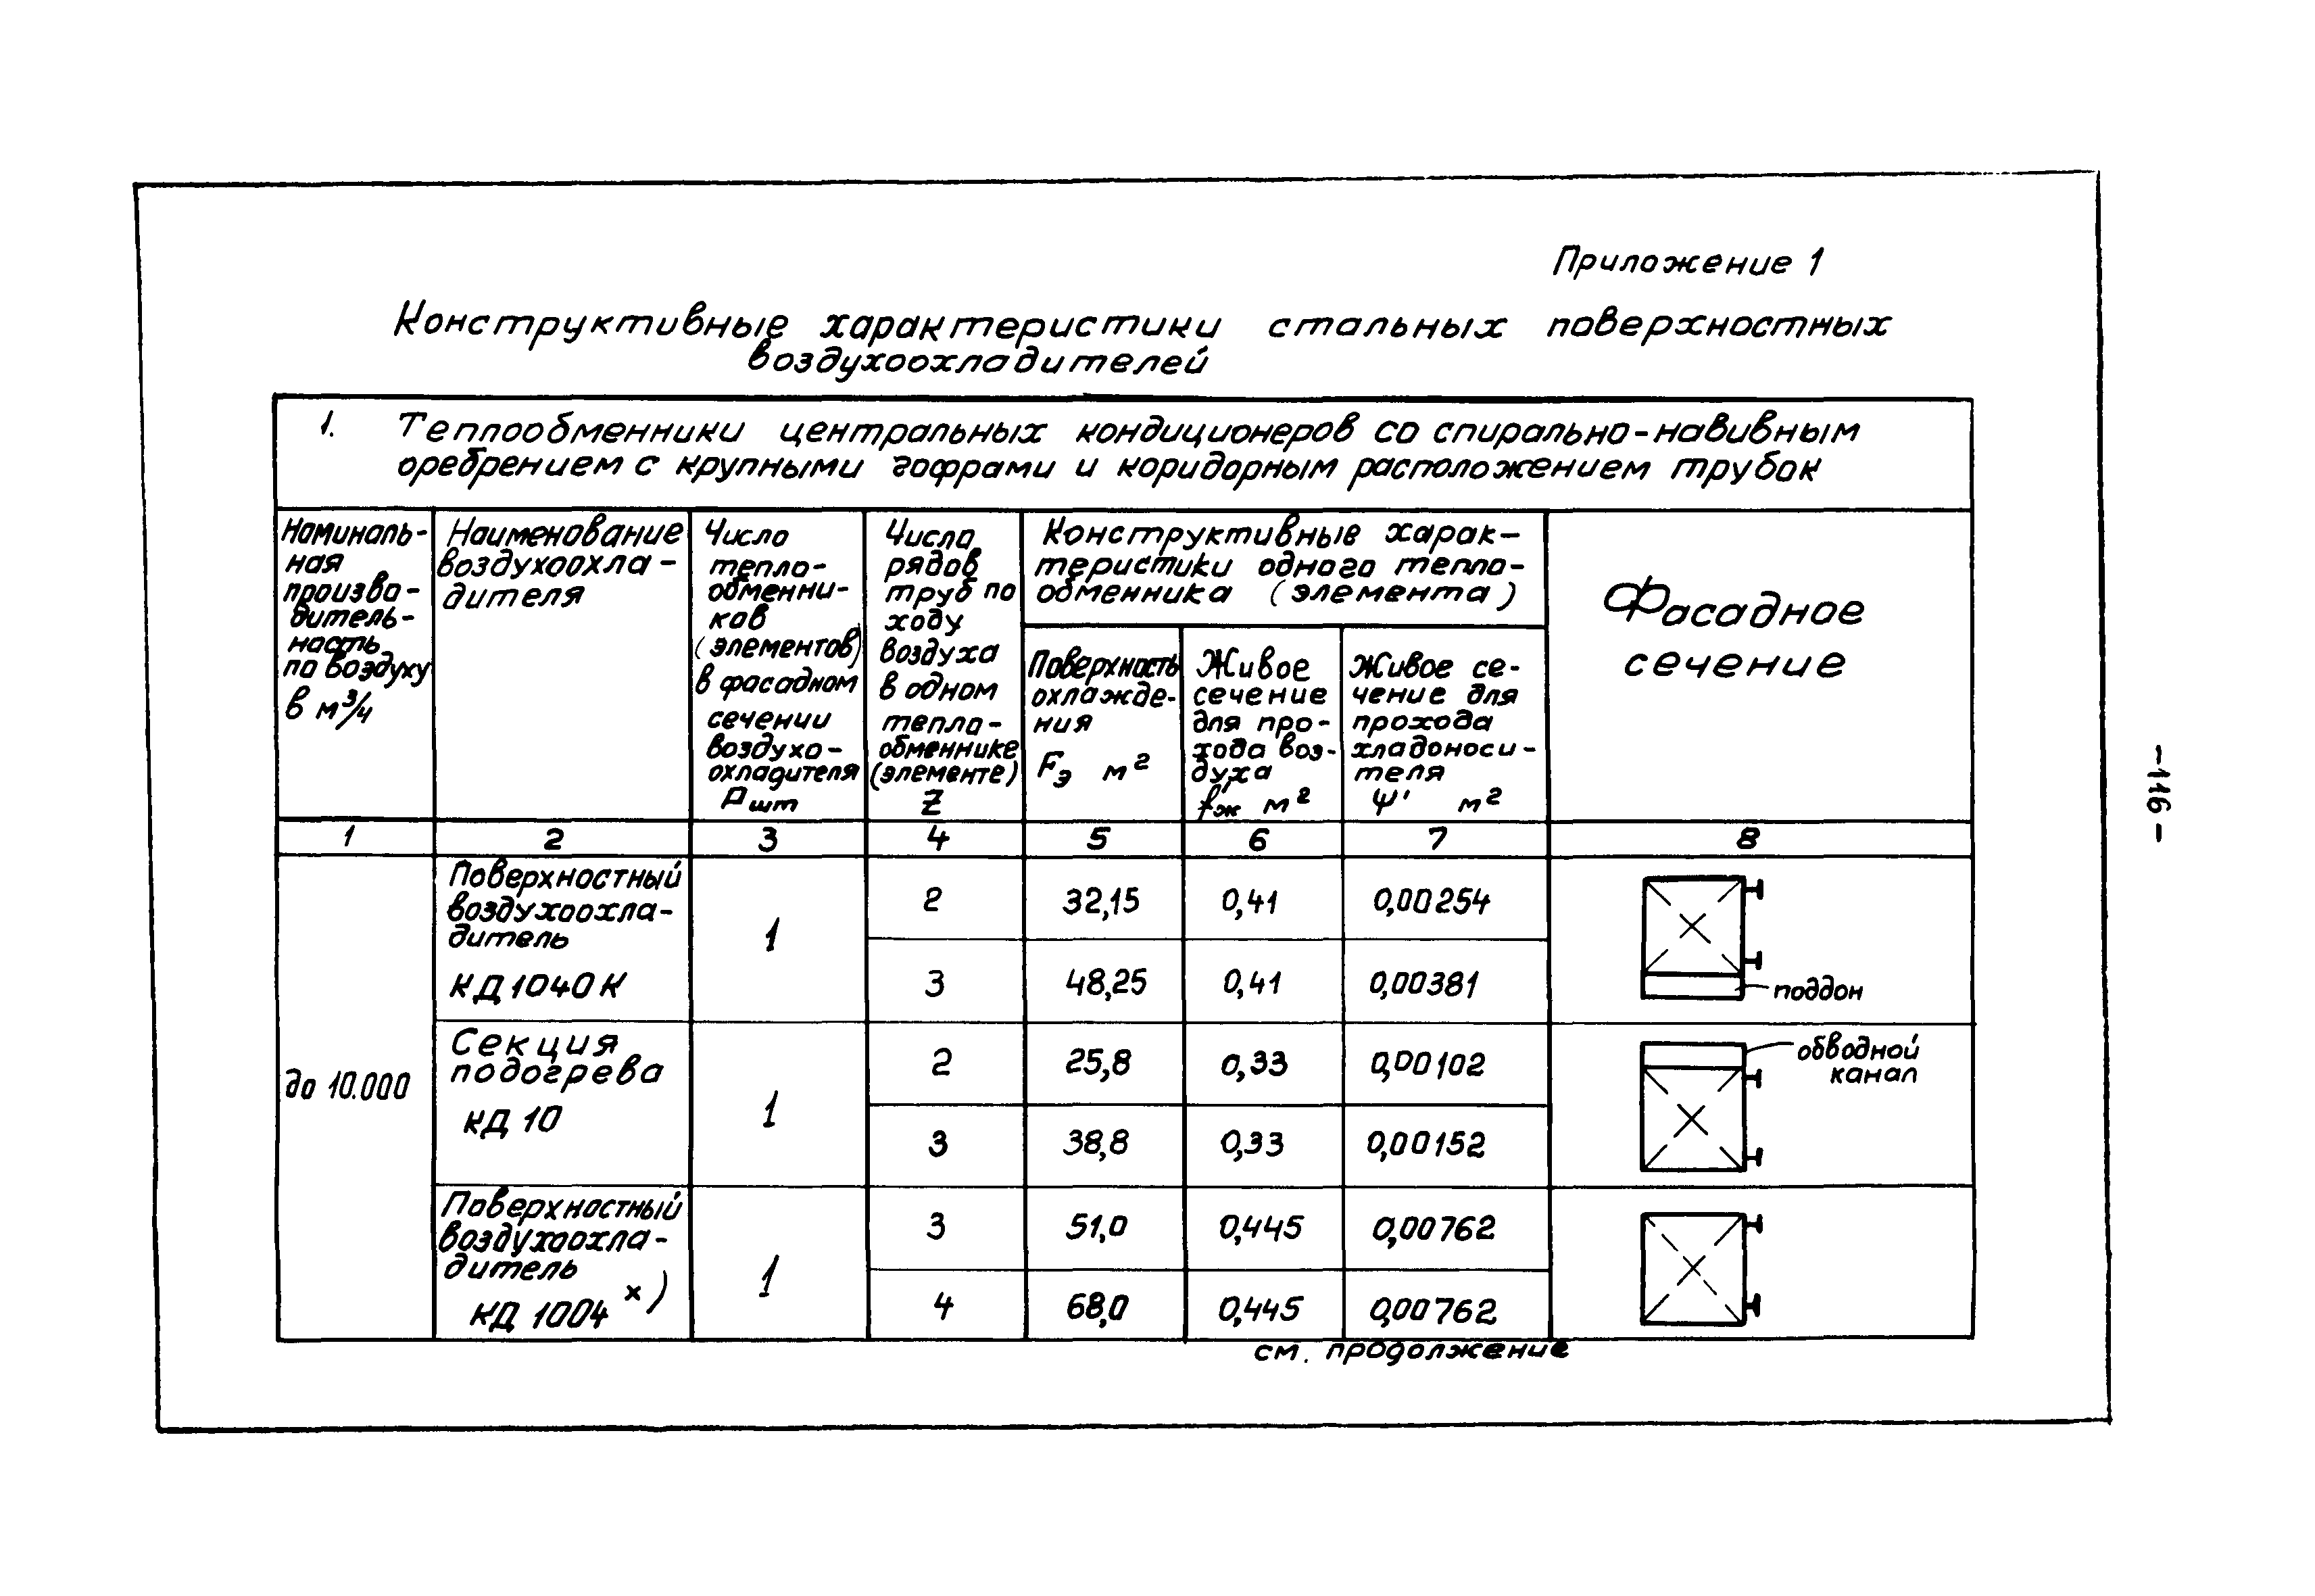 Приложение 1
Конструктивные характеристики стальных поверхностных
воздухоохладителей
1. Теплообменники центральных кондиционеров со спирально-навивным
оребрением с крупными гофрами и коридорным расположением трубок
Номиналь-
ная
произво-
дитель-
ность
по воздуху
в м³/ч
Наименование
воздухоохла-
дителя
Число
тепло-
обменни-
ков
(элементов)
в фасадном
сечении
воздухо-
охладителя
Р шт
Числа
рядов
труб по
ходу
воздуха
в одном
тепло-
обменнике
(элементе)
Z
Конструктивные харак-
теристики одного тепло-
обменника (элемента)
Поверхность
охлажде-
ния
Fэ м²
Живое
сечение
для про-
хода воз-
духа
f'ж м²
Живое се-
чение для
прохода
хладоноси-
теля
ψ' м²
Фасадное
сечение
1 2 3 4 5 6 7 8
до 10.000
Поверхностный
воздухоохла-
дитель
КД 1040 К
1
2 32,15 0,41 0,00254
3 48,25 0,41 0,00381
поддон
Секция
подогрева
КД 10
1
2 25,8 0,33 0,00102
3 38,8 0,33 0,00152
обводной
канал
Поверхностный
воздухоохла-
дитель
КД 1004 х)
1
3 51,0 0,445 0,00762
4 68,0 0,445 0,00762
см. продолжение
-116-